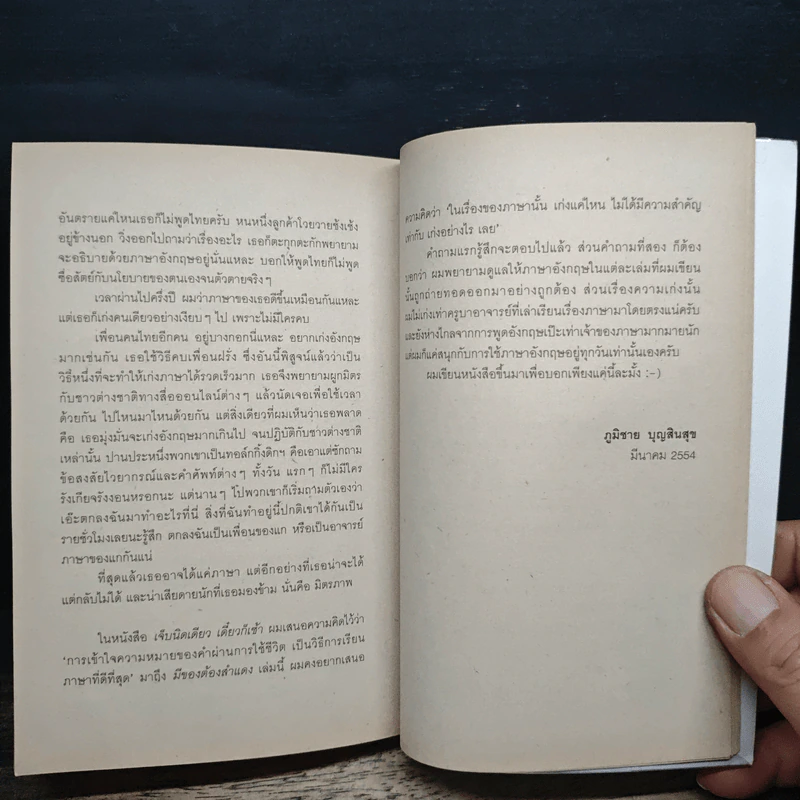 อันตรายแค่ไหนเธอก็ไม่พูดไทยครับ หนหนึ่งลูกค้าโวยวายชังเช้ง
อยู่ข้างนอก วิ่งออกไปถามว่าเรื่องอะไร เธอก็ตะกุกตะกักพยายาม
จะอธิบายด้วยภาษาอังกฤษอยู่นั่นแหละ บอกให้พูดไทยก็ไม่พูด
ซื่อสัตย์กับนโยบายของตนเองจนตัวตายจริงๆ
เวลาผ่านไปครึ่งปี ผมว่าภาษาของเธอดีขึ้นเหมือนกันแหละ
แต่เธอก็เก่งคนเดียวอย่างเงียบๆ ไป เพราะไม่มีใครคบ
เพื่อนคนไทยอีกคน อยู่บางกอกนี่แหละ อยากเก่งอังกฤษ
มากเช่นกัน เธอใช้วิธีคบเพื่อนฝรั่ง ซึ่งอันนี้พิสูจน์แล้วว่าเป็น
วิธีหนึ่งที่จะทำให้เก่งภาษาได้รวดเร็วมาก เธอจึงพยายามผูกมิตร
กับชาวต่างชาติทางสื่อออนไลน์ต่างๆ แล้วนัดเจอเพื่อใช้เวลา
ด้วยกัน ไปไหนมาไหนด้วยกัน แต่สิ่งเดียวที่ผมเห็นว่าเธอพลาด
คือ เธอมุ่งมั่นจะเก่งอังกฤษมากเกินไป จนปฏิบัติกับชาวต่างชาติ
เหล่านั้น ปานประหนึ่งพวกเขาเป็นทอล์กกิ้งดิกฯ คือเอาแต่ซักถาม
ข้อสงสัยไวยากรณ์และคำศัพท์ต่างๆ ทั้งวัน แรกๆ ก็ไม่มีใคร
รังเกียจรังงอนหรอกนะ แต่นานๆ ไปพวกเขาก็เริ่มถามตัวเองว่า
เอ๊ะตกลงฉันมาทำอะไรที่นี่ สิ่งที่ฉันทำอยู่นี้ปกติเขาได้กันเป็น
รายชั่วโมงเลยนะรู้สึก ตกลงฉันเป็นเพื่อนของแก หรือเป็นอาจารย์
ภาษาของแกกันแน่
ที่สุดแล้วเธออาจได้แค่ภาษา แต่อีกอย่างที่เธอน่าจะได้
แต่กลับไม่ได้ และน่าเสียดายนักที่เธอมองข้าม นั่นคือ มิตรภาพ
ในหนังสือ เจ็บนิดเดียว เดี๋ยวก็เช้า ผมเสนอความคิดไว้ว่า
'การเข้าใจความหมายของคำผ่านการใช้ชีวิต เป็นวิธีการเรียน
ภาษาที่ดีที่สุด' มาถึง มีของต้องสำแดง เล่มนี้ ผมคงอยากเสนอ
ความคิดว่า 'ในเรื่องของภาษานั้น เก่งแค่ไหน ไม่ได้มีความสำคัญ
เท่ากับ เก่งอย่างไร เลย'
คำถามแรกรู้สึกจะตอบไปแล้ว ส่วนคำถามที่สอง ก็ต้อง
บอกว่า ผมพยายามดูแลให้ภาษาอังกฤษในแต่ละเล่มที่ผมเขียน
นั้นถูกถ่ายทอดออกมาอย่างถูกต้อง ส่วนเรื่องความเก่งนั้น
ผมไม่เก่งเท่าครูบาอาจารย์ที่เล่าเรียนเรื่องภาษามาโดยตรงแน่ครับ
และยังห่างไกลจากการพูดอังกฤษเป๊ะเท่าเจ้าของภาษามากมายนัก
แต่ผมก็แค่สนุกกับการใช้ภาษาอังกฤษอยู่ทุกวันเท่านั้นเองครับ
ผมเขียนหนังสือขึ้นมาเพื่อบอกเพียงแค่นี้ละมั้ง :-)
ภูมิชาย บุญสินสุข
มีนาคม 2554